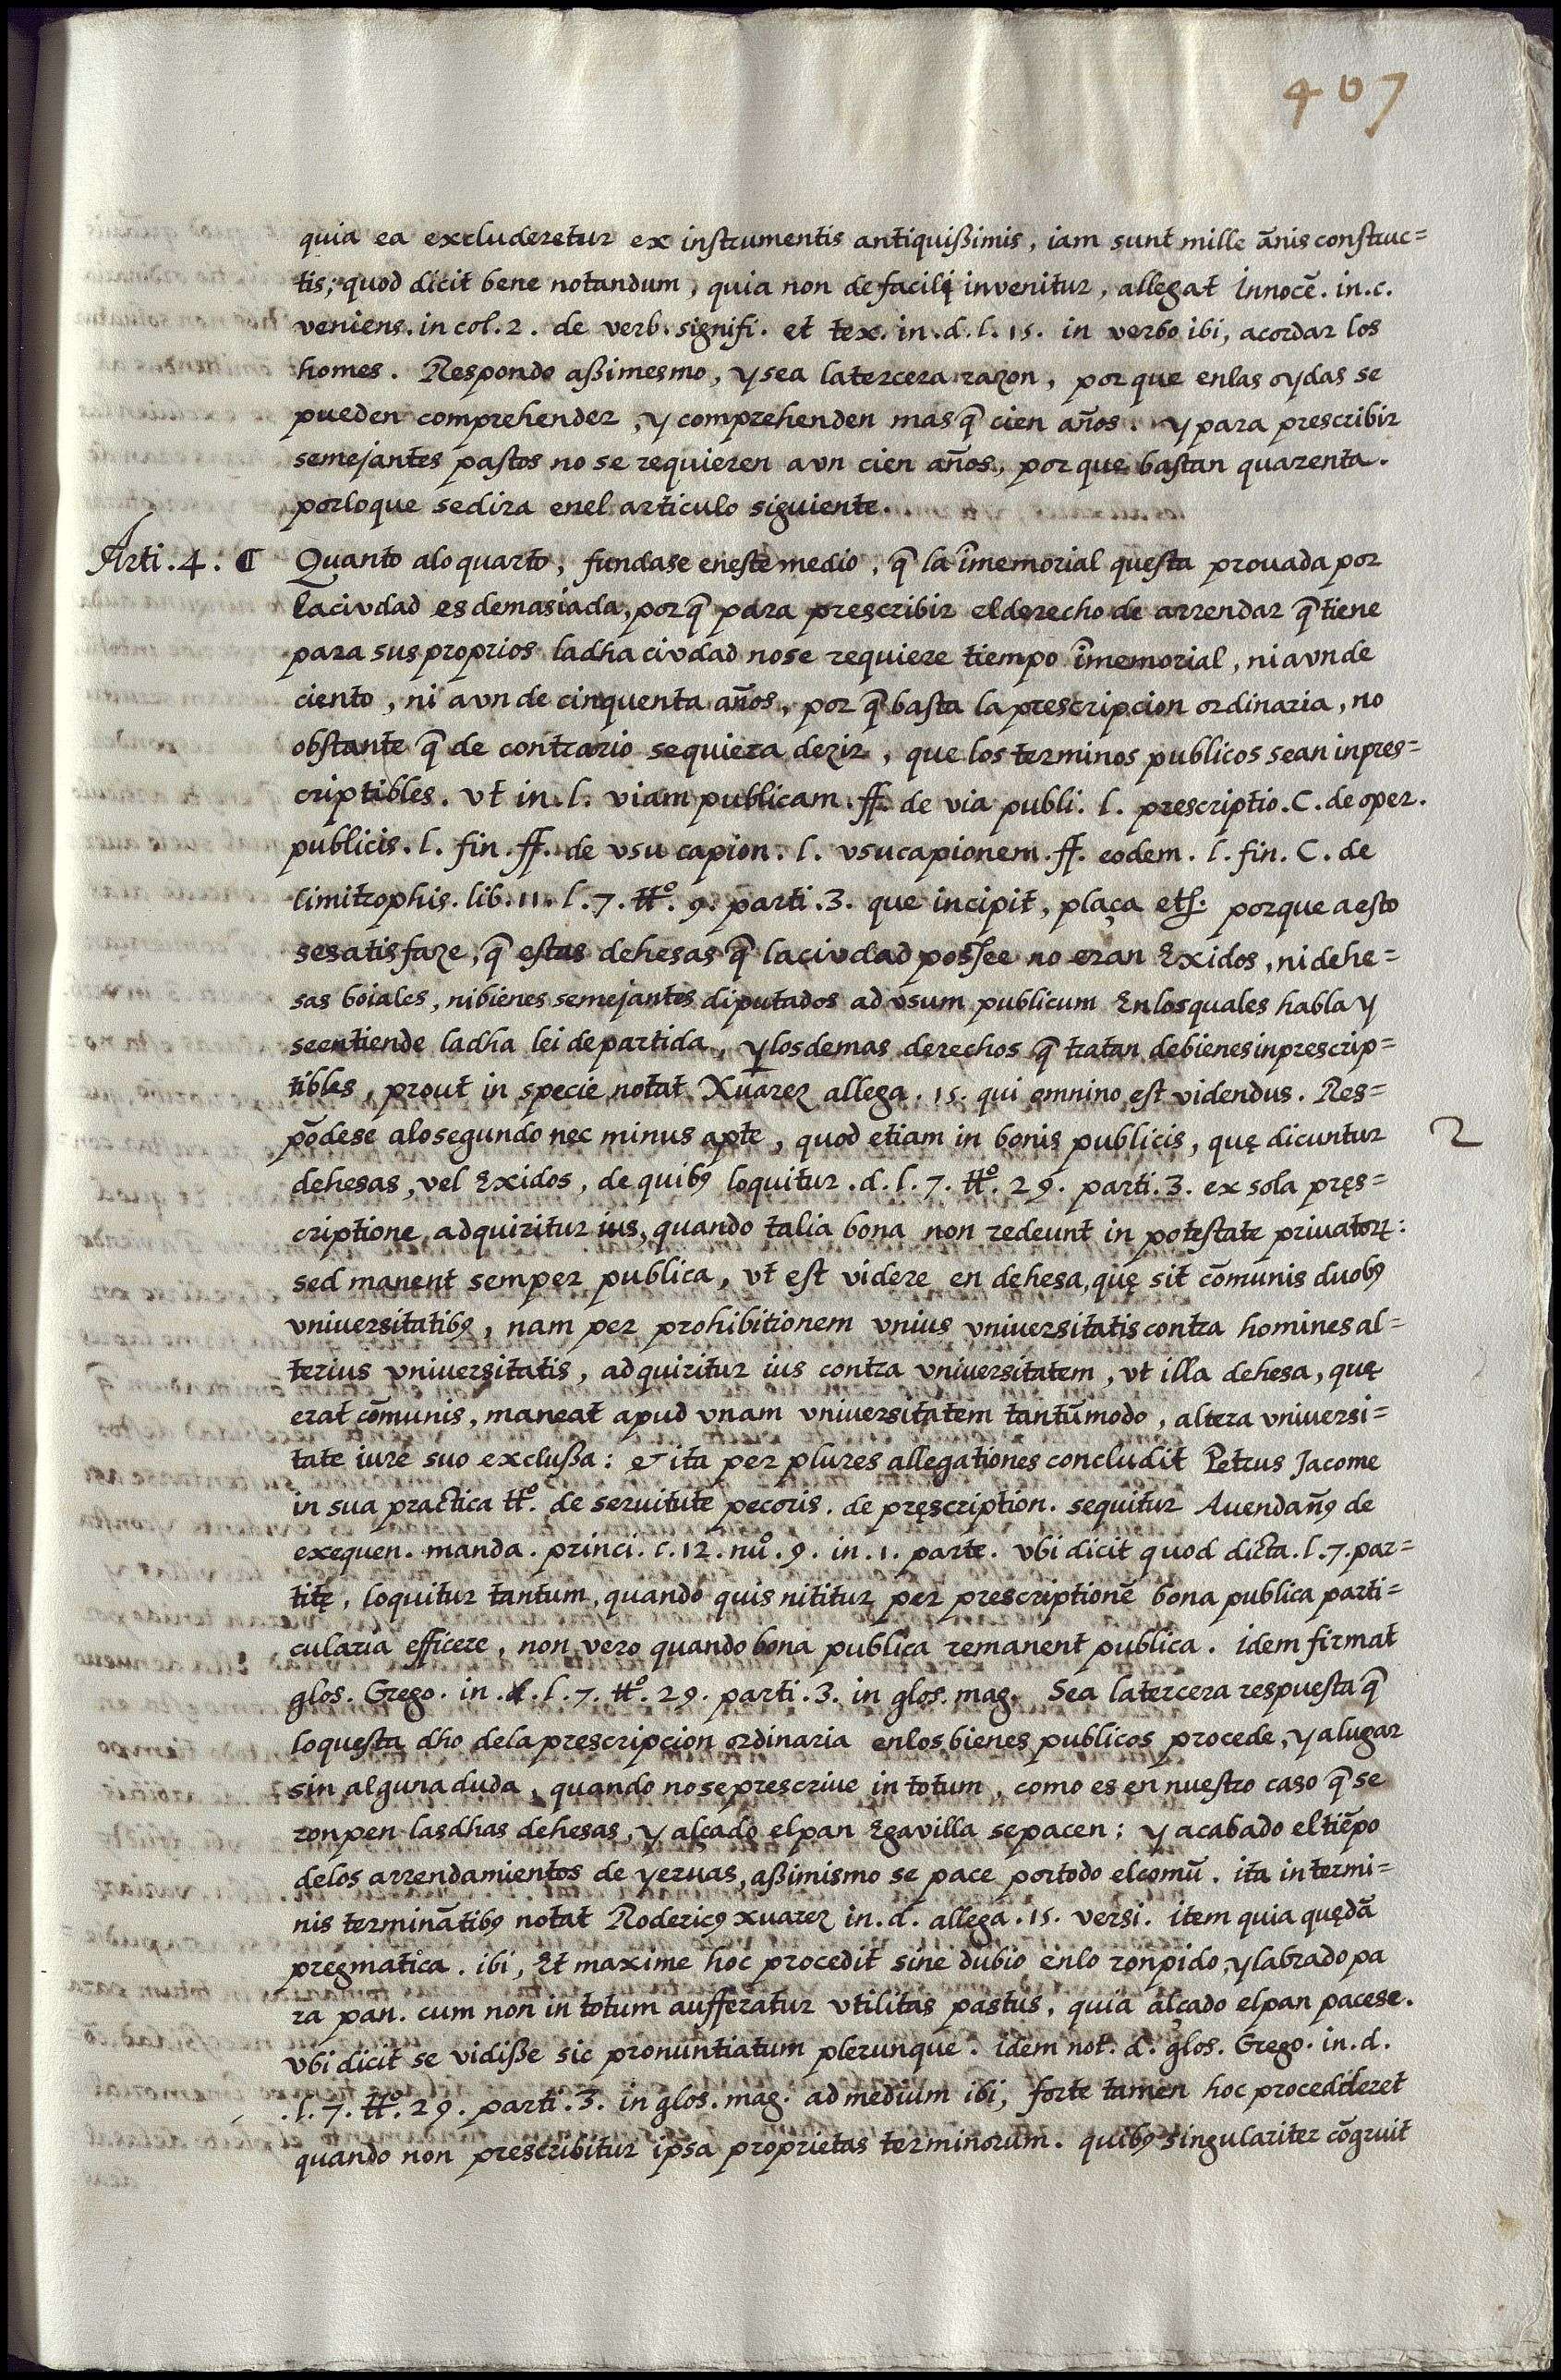 407
quia ea excluderetur ex instrumentis antiquißimis, iam sunt mille ãnis construc=
tis; quod dicit bene notandum, quia non de facili invenitur, allegat Innocẽ. in. c.
veniens. in col. 2. de verb. signifi. et tex. in. d. l. 15. in verbo ibi, acordar los
homes. Respondo aßimesmo, y sea la tercera razon, por que en las oydas se
pueden comprehender, y comprehenden mas q̃ cien años. y para prescribir
semejantes pastos no se requieren avn cien años, por que bastan quarenta.
por lo que se dira en el articulo siguiente.
Arti. 4. ¶ Quanto alo quarto, fundase en este medio, q̃ la ĩmemorial questa prouada por
la ciudad es demasiada, por q̃ para prescribir el derecho de arrendar q̃ tiene
para sus proprios la dha ciudad no se requiere tiempo ĩmemorial, ni avn de
ciento, ni avn de cinquenta años, por q̃ basta la prescripcion ordinaria, no
obstante q̃ de contrario se quiera dezir, que los terminos publicos sean inpres=
criptibles. vt in. l. viam publicam. ff. de via publi. l. prescriptio. C. de oper.
publicis. l. fin. ff. de vsu capion. l. vsucapionem. ff. eodem. l. fin. C. de
limitrophis. lib. 11. l. 7. ttº. 9. parti. 3. que incipit, plaça etſ. porque a esto
se satisfaze, q̃ estas dehesas q̃ la ciudad possee no eran Exidos, ni dehe=
sas boiales, ni bienes semejantes diputados ad vsum publicum En los quales habla y
se entiende la dha lei de partida, y los demas derechos q̃ tratan de bienes inprescrip=
tibles, prout in specie notat Xuarez allega. 15. qui omnino est videndus. Res=
põdese alo segundo nec minus apte, quod etiam in bonis publicis, quę dicuntur 2
dehesas, vel Exidos, de quibꝰ loquitur. d. l. 7. ttº. 29. parti. 3. ex sola pręs=
criptione adquiritur ius, quando talia bona non redeunt in potestate priuatoꝝ:
sed manent semper publica, vt est videre en dehesa, quę sit cõmunis duobꝰ
vniuersitatibꝰ, nam per prohibitionem vnius vniuersitatis contra homines al=
terius vniuersitatis, adquiritur ius contra vniuersitatem, vt illa dehesa, quę
erat cõmunis, maneat apud vnam vniuersitatem tantũmodo, altera vniuersi=
tate iure suo exclußa: et ita per plures allegationes concludit Petrus Jacome
in sua practica ttº. de seruitute pecoris. de pręscription. sequitur Auendañꝰ de
exequen. manda. princi. c. 12. nuº. 9. in. 1. parte. vbi dicit quod dicta. l. 7. par=
titę, loquitur tantum, quando quis nititur per prescriptionẽ bona publica parti=
cularia efficere, non vero quando bona publica remanent publica. idem firmat
glos. Grego. in. d. l. 7. ttº. 29. parti. 3. in glos. mag. Sea la tercera respuesta q̃
lo questa dho dela prescripcion ordinaria en los bienes publicos procede, y a lugar
sin alguna duda, quando no se prescriue in totum, como es en nuestro caso q̃ se
ronpen las dhas dehesas, y alçado el pan Egavilla se pacen: y acabado el tiẽpo
delos arrendamientos de yeruas, aßimismo se pace por todo el comũ. ita in termi=
nis terminãtibꝰ notat Rodericꝰ xuarez in. d. allega. 15. versi. item quia quędã
pregmatica. ibi, Et maxime hoc procedit sine dubio en lo ronpido, y labrado pa
ra pan. cum non in totum aufferatur vtilitas pastus, quia alçado el pan pacese.
vbi dicit se vidiße sic pronuntiatum plerunque. idem not. d. glos. Grego. in. d.
.l. 7. ttº. 29. parti. 3. in glos. mag. ad medium ibi, forte tamen hoc procederet
quando non prescribitur ipsa proprietas terminorum. quibꝰ singulariter cõgruit